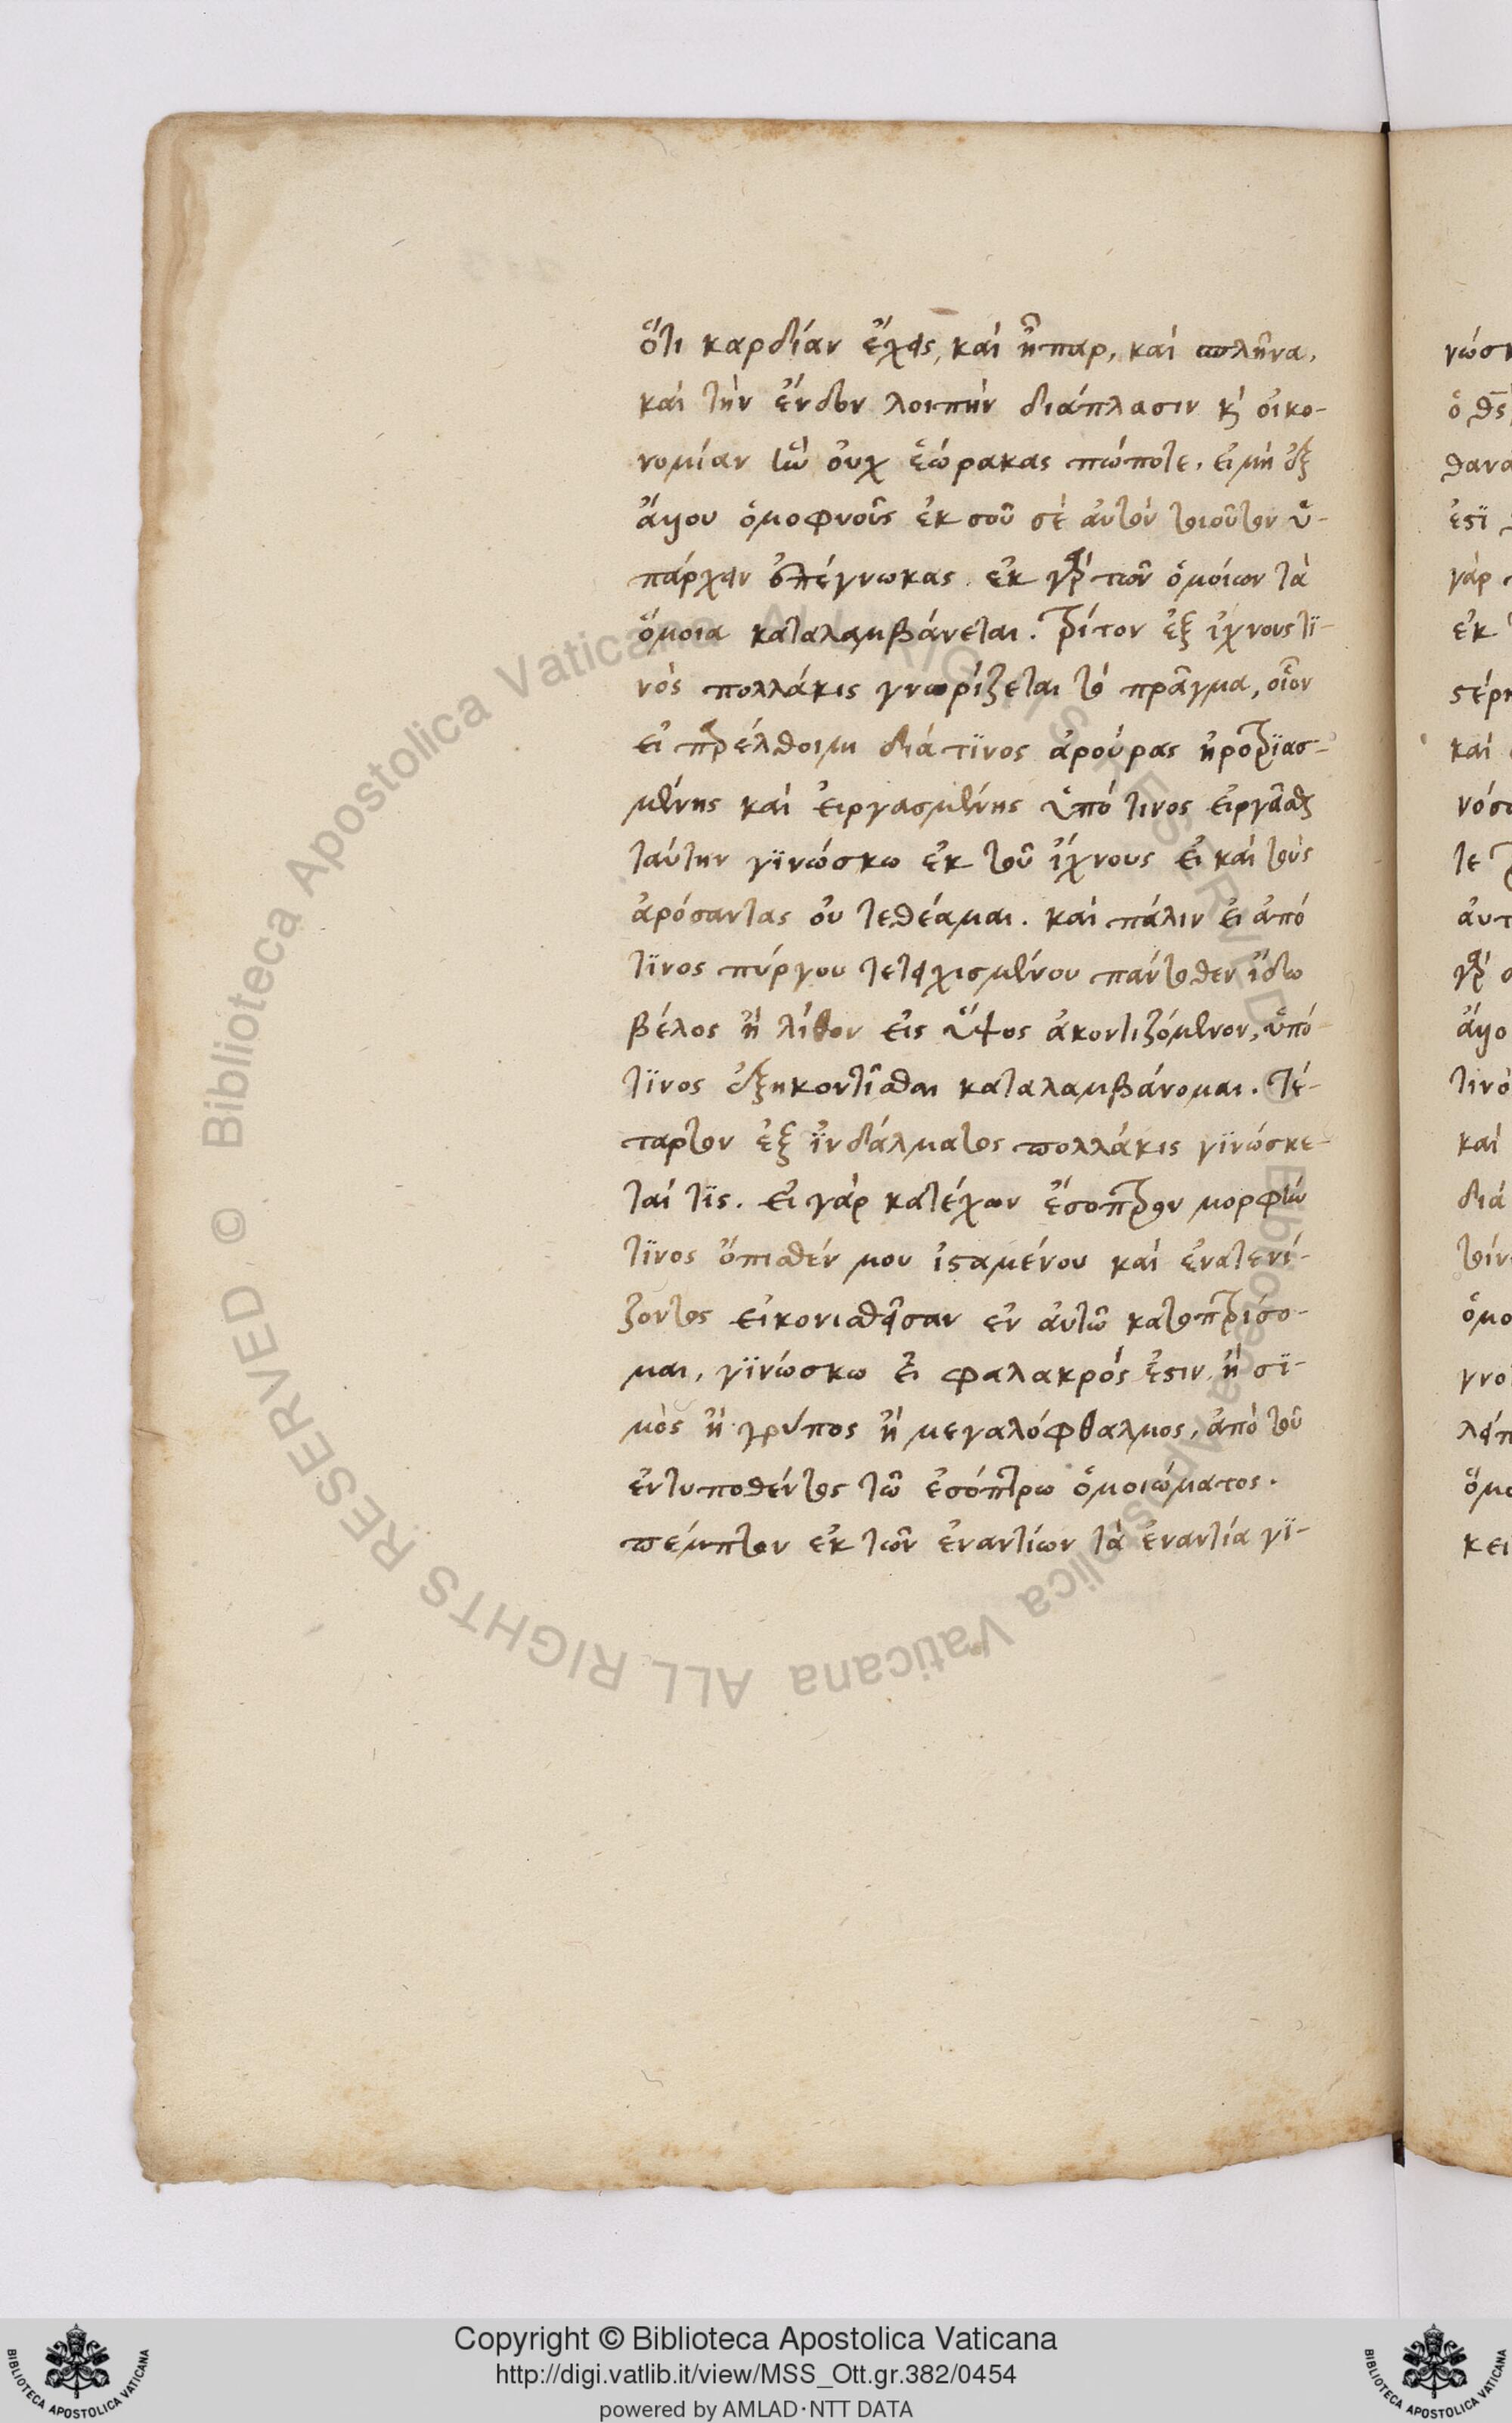 ὅτι καρδίαν ἔχεις, καὶ ἧπαρ, καὶ σπλῆνα,
καὶ τὴν ἔνδον λοιπὴν διάπλασιν κ οἰκο-
νομίαν ἣν οὐχ ἑώρακας πώποτε. εἰ μὴ ἐξ
ἄλλου ὁμοφυοῦς ἐκ σοῦ σὲ αὐτὸν τοιοῦτον ὑ-
πάρχειν ἐπέγνωκας. ἐκ γὰρ τῶν ὁμοίων τὰ
ὅμοια καταλαμβάνεται. τρίτον ἐξ ἴχνους τϊ-
νὸς πολλάκις γνωρίζεται τὸ πρᾶγμα, οἷον
εἰ παρέλθοιμι διὰ τϊνος ἀρούρας ἠροτρϊασ-
μένης καὶ εἰργασμένης ὑπό τινος εἰργᾶσθαι
ταύτην γϊνώσκω ἐκ τοῦ ἴχνους εἰ καὶ τοὺς
ἀρόσαντας οὐ τεθέαμαι. καὶ πάλιν εἰ ἀπό
τϊνος πύργου τετειχισμένου πάντοθεν ἴδω
βέλος ἢ λίθον εἰς ὕψος ἀκοντιζόμενον, ὑπό
τϊνος ἐξηκοντῖσθαι καταλαμβάνομαι. τέ-
ταρτον ἐξ ϊνδάλματος πολλάκις γϊνώσκε-
ταί τϊς. εἰ γὰρ κατέχων ἔσοπτρον μορφὴν
τϊνος ὄπισθέν μου ἱσταμένου καὶ ἐνατενί-
ζοντος εἰκονισθεῖσαν ἐν αὐτῶ κατοπτρίσο-
μαι, γϊνώσκω εἰ φαλακρός ἐστιν, ἢ σϊ-
μὸς ἢ γρύπος ἢ μεγαλόφθαλμος, ἀπὸ τοῦ
ἐντυποθέντος τῶ ἐσόπτρω ὁμοιώματος.
πέμπτον ἐκ τῶν ἐναντίων τὰ ἐναντία γϊ-
Copyright © Biblioteca Apostolica Vaticana
http://digi.vatlib.it/view/MSS_Ott.gr.382/0454
powered by AMLAD·NTT DATA
© Biblioteca Apostolica Vaticana ALL RIGHTS RESERVED
© Biblioteca Apostolica Vaticana ALL RIGHTS RESERVED
BIBLIOTECA APOSTOLICA VATICANA
BIBLIOTECA APOSTOLICA VATICANA